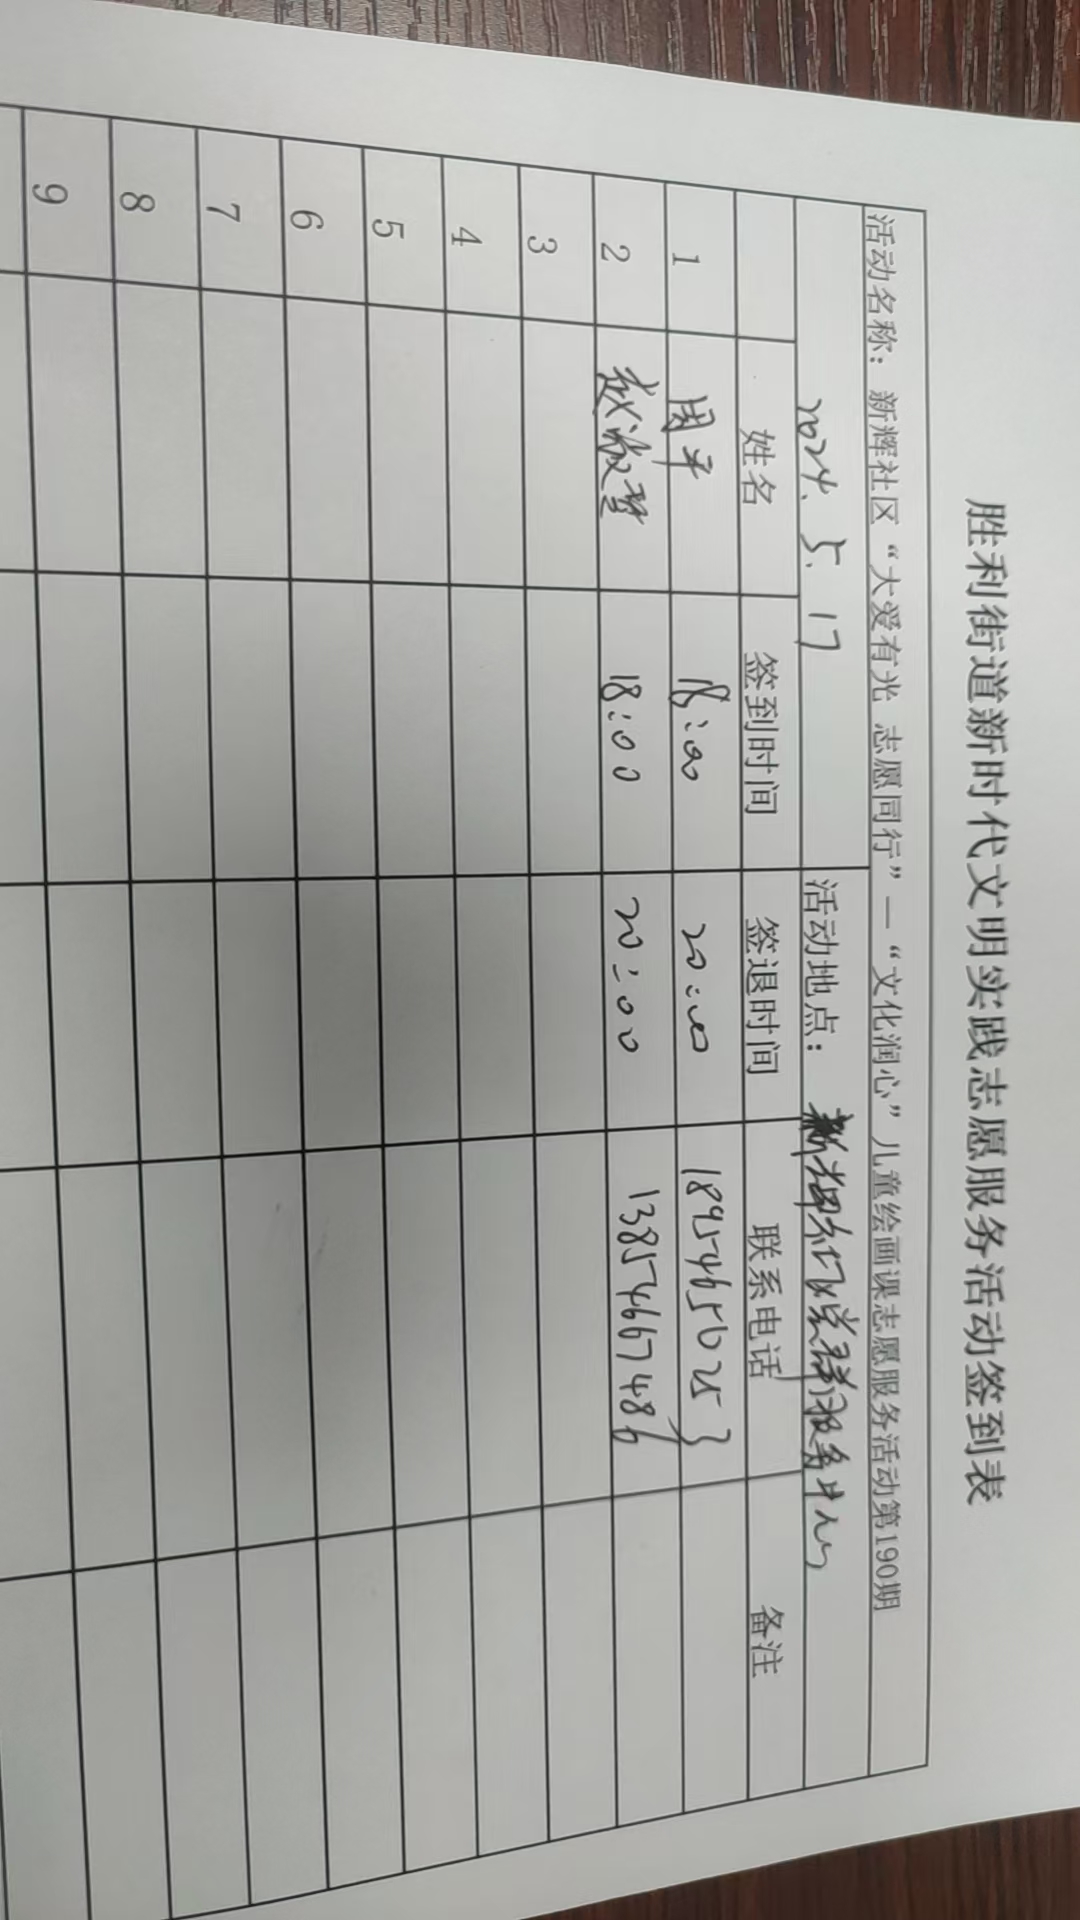 胜利街道新时代文明实践志愿服务活动签到表
活动名称：新辉社区“大爱有光 志愿同行”—“文化润心”儿童绘画课志愿服务活动第190期
2024.5.17 活动地点：新辉社区党群服务中心
姓名 签到时间 签退时间 联系电话 备注
1 周平 18:00 20:00 18954650253
2 赵 18:00 20:00 13854667486
3
4
5
6
7
8
9